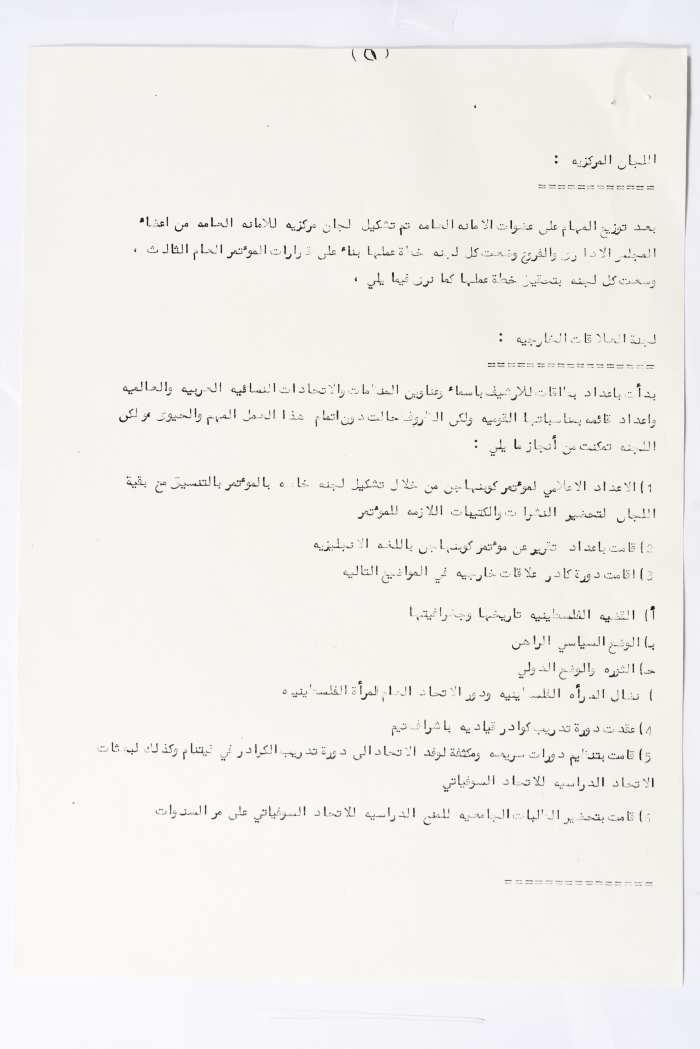 (٥)
اللجان المركزيه :
============
بعد توزيع المهام على عضوات الامانه العامه تم تشكيل لجان مركزيه للامانه العامه من اعضاء
المجلس الاداري والفروع وضعت كل لجنه خطة عملها بناء على قرارات المؤتمر العام الثالث ،
وسعت كل لجنه بتحقيق خطة عملها كما نرى فيما يلي ،
لجنة العلاقات الخارجيه :
=================
بدأت باعداد بطاقات للارشيف باسماء وعناوين المنظمات والاتحادات النسائيه العربيه والعالميه
واعداد قائمه بمناسباتها القوميه ولكن الظروف حالت دون اتمام هذا العمل المهم والحيوى ولكن
اللجنه تمكنت من أنجاز ما يلي :
1) الاعداد الاعلامي لمؤتمر كوبنهاجن من خلال تشكيل لجنه خاصه بالمؤتمر بالتنسيق مع بقية
اللجان لتحضير النشرات والكتيبات اللازمه للمؤتمر
2) قامت باعداد تقرير عن مؤتمر كوبنهاجن باللغه الانجليزيه
3) اقامت دورة كادر علاقات خارجيه في المواضيع التاليه
أ) القضيه الفلسطينيه تاريخها وجغرافيتها
ب) الوضع السياسي الراهن
حـ) الثوره والوضع الدولي
) نضال المرأه الفلسطينيه ودور الاتحاد العام لمرأة الفلسطينيه
4) عقدت دورة تدريب كوادر قياديه باشراف تيم
5) قامت بتنظيم دورات سريعه ومكثفة لوفد الاتحاد الى دورة تدريب الكوادر في فيتنام وكذلك لبعثات
الاتحاد الدراسيه للاتحاد السوفياتي
6) قامت بتحضير الطالبات الجامعيه للمنح الدراسيه للاتحاد السوفياتي على مر السنوات
===============